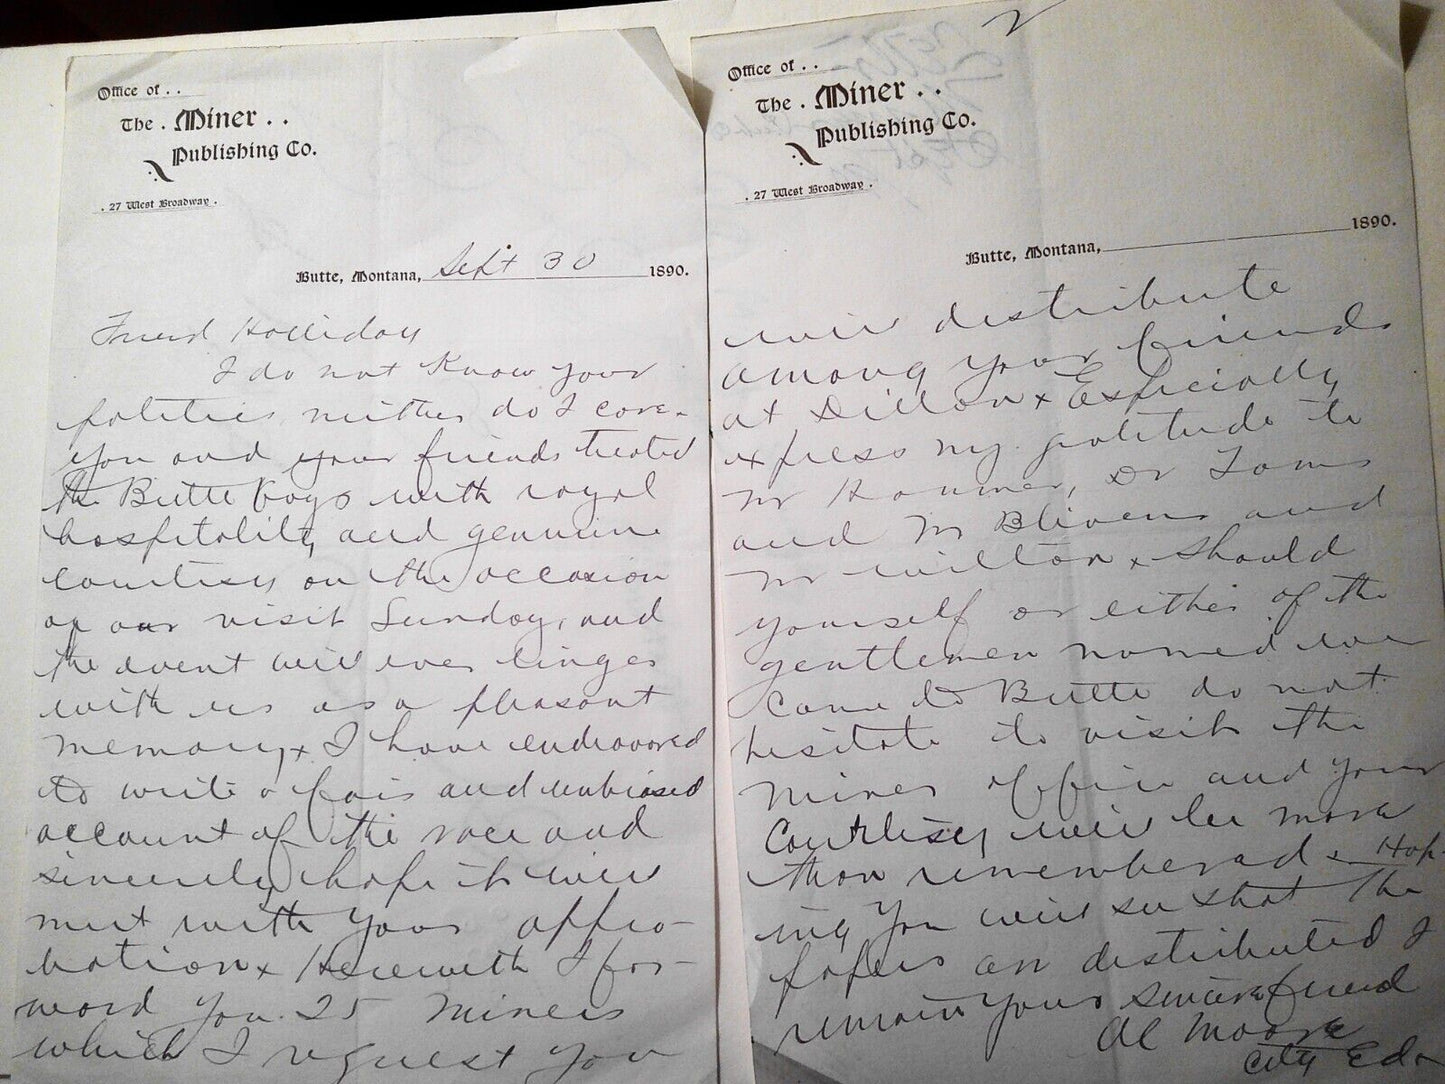 Office of . .
The . Miner . .
Publishing Co.
. 27 West Broadway .
Butte, Montana, Sept 30 1890.
Friend Holliday
I do not know your
politics neither do I care.
You and your friends treated
the Butte boys with royal
hospitality and genuine
courtesy on the occasion
of our visit Sunday, and
the event will ever linger
with us as a pleasant
memory x I have endeavored
to write a fair and unbiased
account of the race and
sincerely hope it will
meet with your appro-
bation x Herewith I for-
ward you 25 Miners
which I request you
2
Office of . .
The . Miner . .
Publishing Co.
. 27 West Broadway .
Butte, Montana, 1890.
will distribute
among your friends
at Dillon x Especially
express my gratitude to
Mr , Dr
and Mr Blivens and
Mr Wilton x Should
yourself or either of the
gentlemen named ever
come to Butte do not
hesitate to visit the
Miner office and your
Courtesy will be more
than remembered x Hop-
ing you will see that the
papers are distributed I
remain Your sincere friend
Al Moore
City Edr